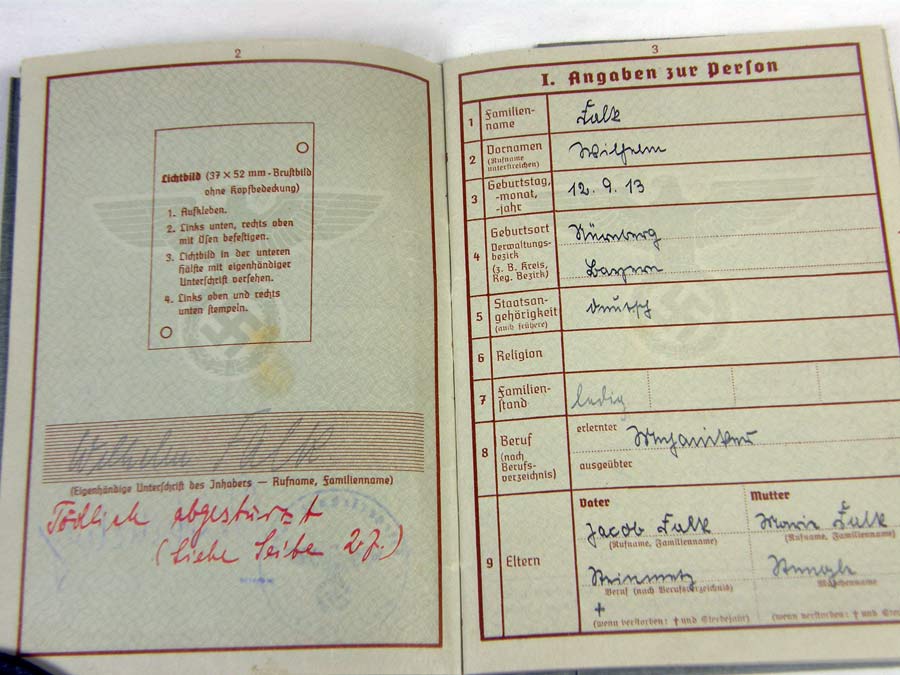 2
Lichtbild (37 × 52 mm - Brustbild
ohne Kopfbedeckung)
1. Aufkleben.
2. Links unten, rechts oben
mit Ösen befestigen.
3. Lichtbild in der unteren
Hälfte mit eigenhändiger
Unterschrift versehen.
4. Links oben und rechts
unten stempeln.
Wilhelm Falk
(Eigenhändige Unterschrift des Inhabers — Rufname, Familienname)
Tödlich abgestürzt
(siehe Seite
3
I. Angaben zur Person
1 Familien-
name
Falk
2 Vornamen
(Rufname
unterstreichen)
Wilhelm
3 Geburtstag,
-monat,
-jahr
12. 9. 13
4 Geburtsort
Verwaltungs-
bezirk
(z. B. Kreis,
Reg. Bezirk)
Nürnberg
Bayern
5 Staatsan-
gehörigkeit
(auch frühere)
deutsch
6 Religion
7 Familien-
stand
ledig
8 Beruf
(nach
Berufs-
verzeichnis)
erlernter Mechaniker
ausgeübter
9 Eltern
Vater
Jacob Falk
(Rufname, Familienname)
Steinmetz
Beruf (nach Berufsverzeichnis)
+
(wenn verstorben: † und Sterbejahr)
Mutter
Marie Falk
(Rufname, Familienname)
Mädchenname
(wenn verstorben: † und